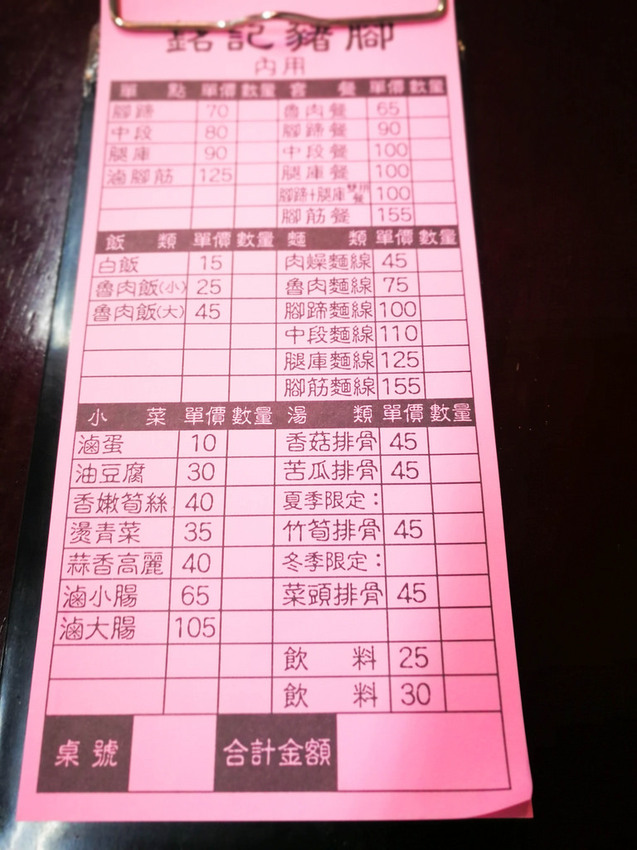 銘記豬腳
內用
單 點 單價 數量 套 餐 單價 數量
腳蹄 70 魯肉餐 65
中段 80 腳蹄餐 90
腿庫 90 中段餐 100
滷腳筋 125 腿庫餐 100
腳蹄+腿庫雙拼餐 100
腳筋餐 155
飯 類 單價 數量 麵 類 單價 數量
白飯 15 肉燥麵線 45
魯肉飯(小) 25 魯肉麵線 75
魯肉飯(大) 45 腳蹄麵線 100
中段麵線 110
腿庫麵線 125
腳筋麵線 155
小 菜 單價 數量 湯 類 單價 數量
滷蛋 10 香菇排骨 45
油豆腐 30 苦瓜排骨 45
香嫩筍絲 40 夏季限定:
燙青菜 35 竹筍排骨 45
蒜香高麗 40 冬季限定:
滷小腸 65 菜頭排骨 45
滷大腸 105
飲 料 25
飲 料 30
桌號 合計金額